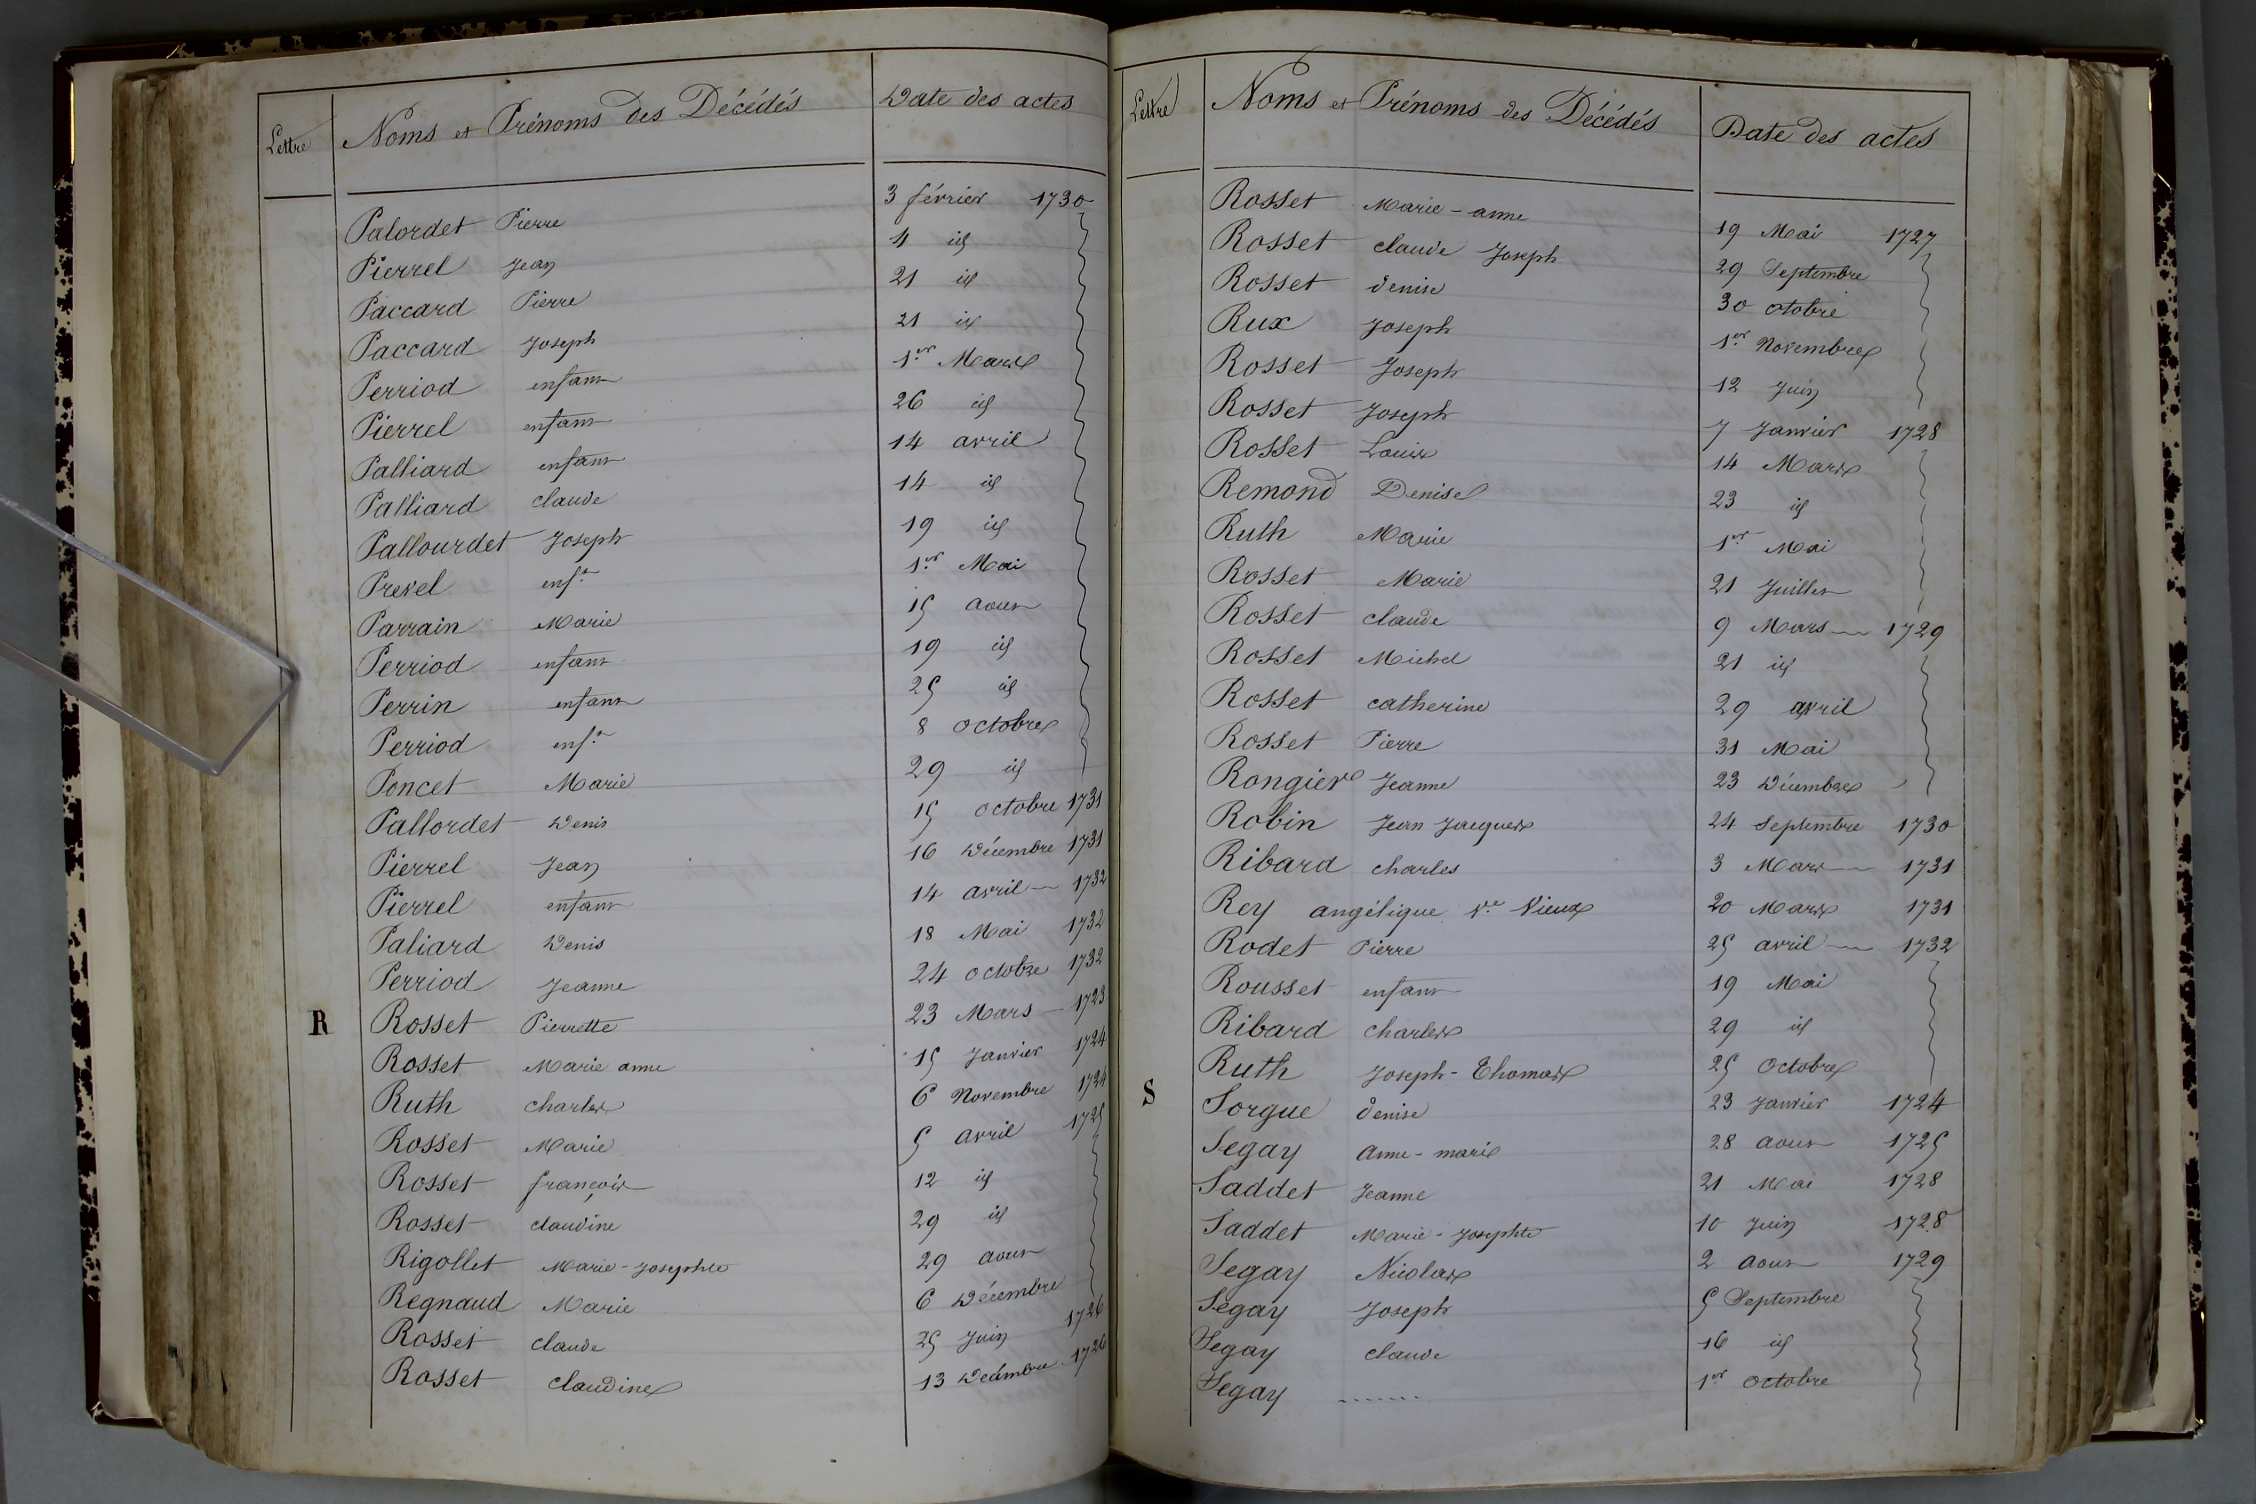 Lettre Noms et Prénoms des Décédés Date des actes
Palordet Pierre 3 février 1730
Pierrel Jean 4 id
Paccard Pierre 21 id
Paccard Joseph 21 id
Perriod enfant 1er Mars
Pierrel enfant 26 id
Palliard enfant 14 avril
Palliard claude 14 id
Pallourdet Joseph 19 id
Prevel enft 1er Mai
Parrain Marie 15 aout
Perriod enfant 19 id
Perrin enfant 25 id
Perriod enft 8 octobre
Poncet Marie 29 id
Pallordet Denis 15 octobre 1731
Pierrel Jean 16 Décembre 1731
Pierrel enfant 14 avril 1732
Paliard Denis 18 Mai 1732
Perriod Jeanne 24 octobre 1732
R Rosset Pierrette 23 Mars 1723
Rosset Marie anne 15 Janvier 1724
Ruth charles 6 Novembre 1724
Rosset Marie 5 avril 1725
Rosset françois 12 id
Rosset claudine 29 id
Rigollet Marie-Josephte 29 aout
Regnaud Marie 6 Décembre
Rosset claude 25 Juin 1726
Rosset claudine 13 Décembre 1726
Lettre Noms et Prénoms des Décédés Date des actes
Rosset Marie-anne 19 Mai 1727
Rosset claude Joseph 29 Septembre
Rosset denise 30 otobre
Rux Joseph 1er Novembre
Rosset Joseph 12 Juin
Rosset Joseph 7 Janvier 1728
Rosset Louis 14 Mars
Remond Denise 23 id
Ruth Marie 1er Mai
Rosset Marie 21 Juillet
Rosset claude 9 Mars 1729
Rosset Michel 21 id
Rosset catherine 29 avril
Rosset Pierre 31 Mai
Rongier Jeanne 23 Décembre
Robin Jean Jacques 24 Septembre 1730
Ribard charles 3 Mars 1731
Rey angélique Ve Vieux 20 Mars 1731
Rodet Pierre 25 avril 1732
Rousset enfant 19 Mai
Ribard charles 29 id
Ruth Joseph-Thomas 25 Octobre
S Sorgue denise 23 Janvier 1724
Segay anne-marie 28 aout 1725
Saddet Jeanne 21 Mai 1728
Saddet Marie-Josephte 10 Juin 1728
Segay Nicolas 2 aout 1729
Segay Joseph 5 Septembre
Segay claude 16 id
Segay ...... 1er octobre